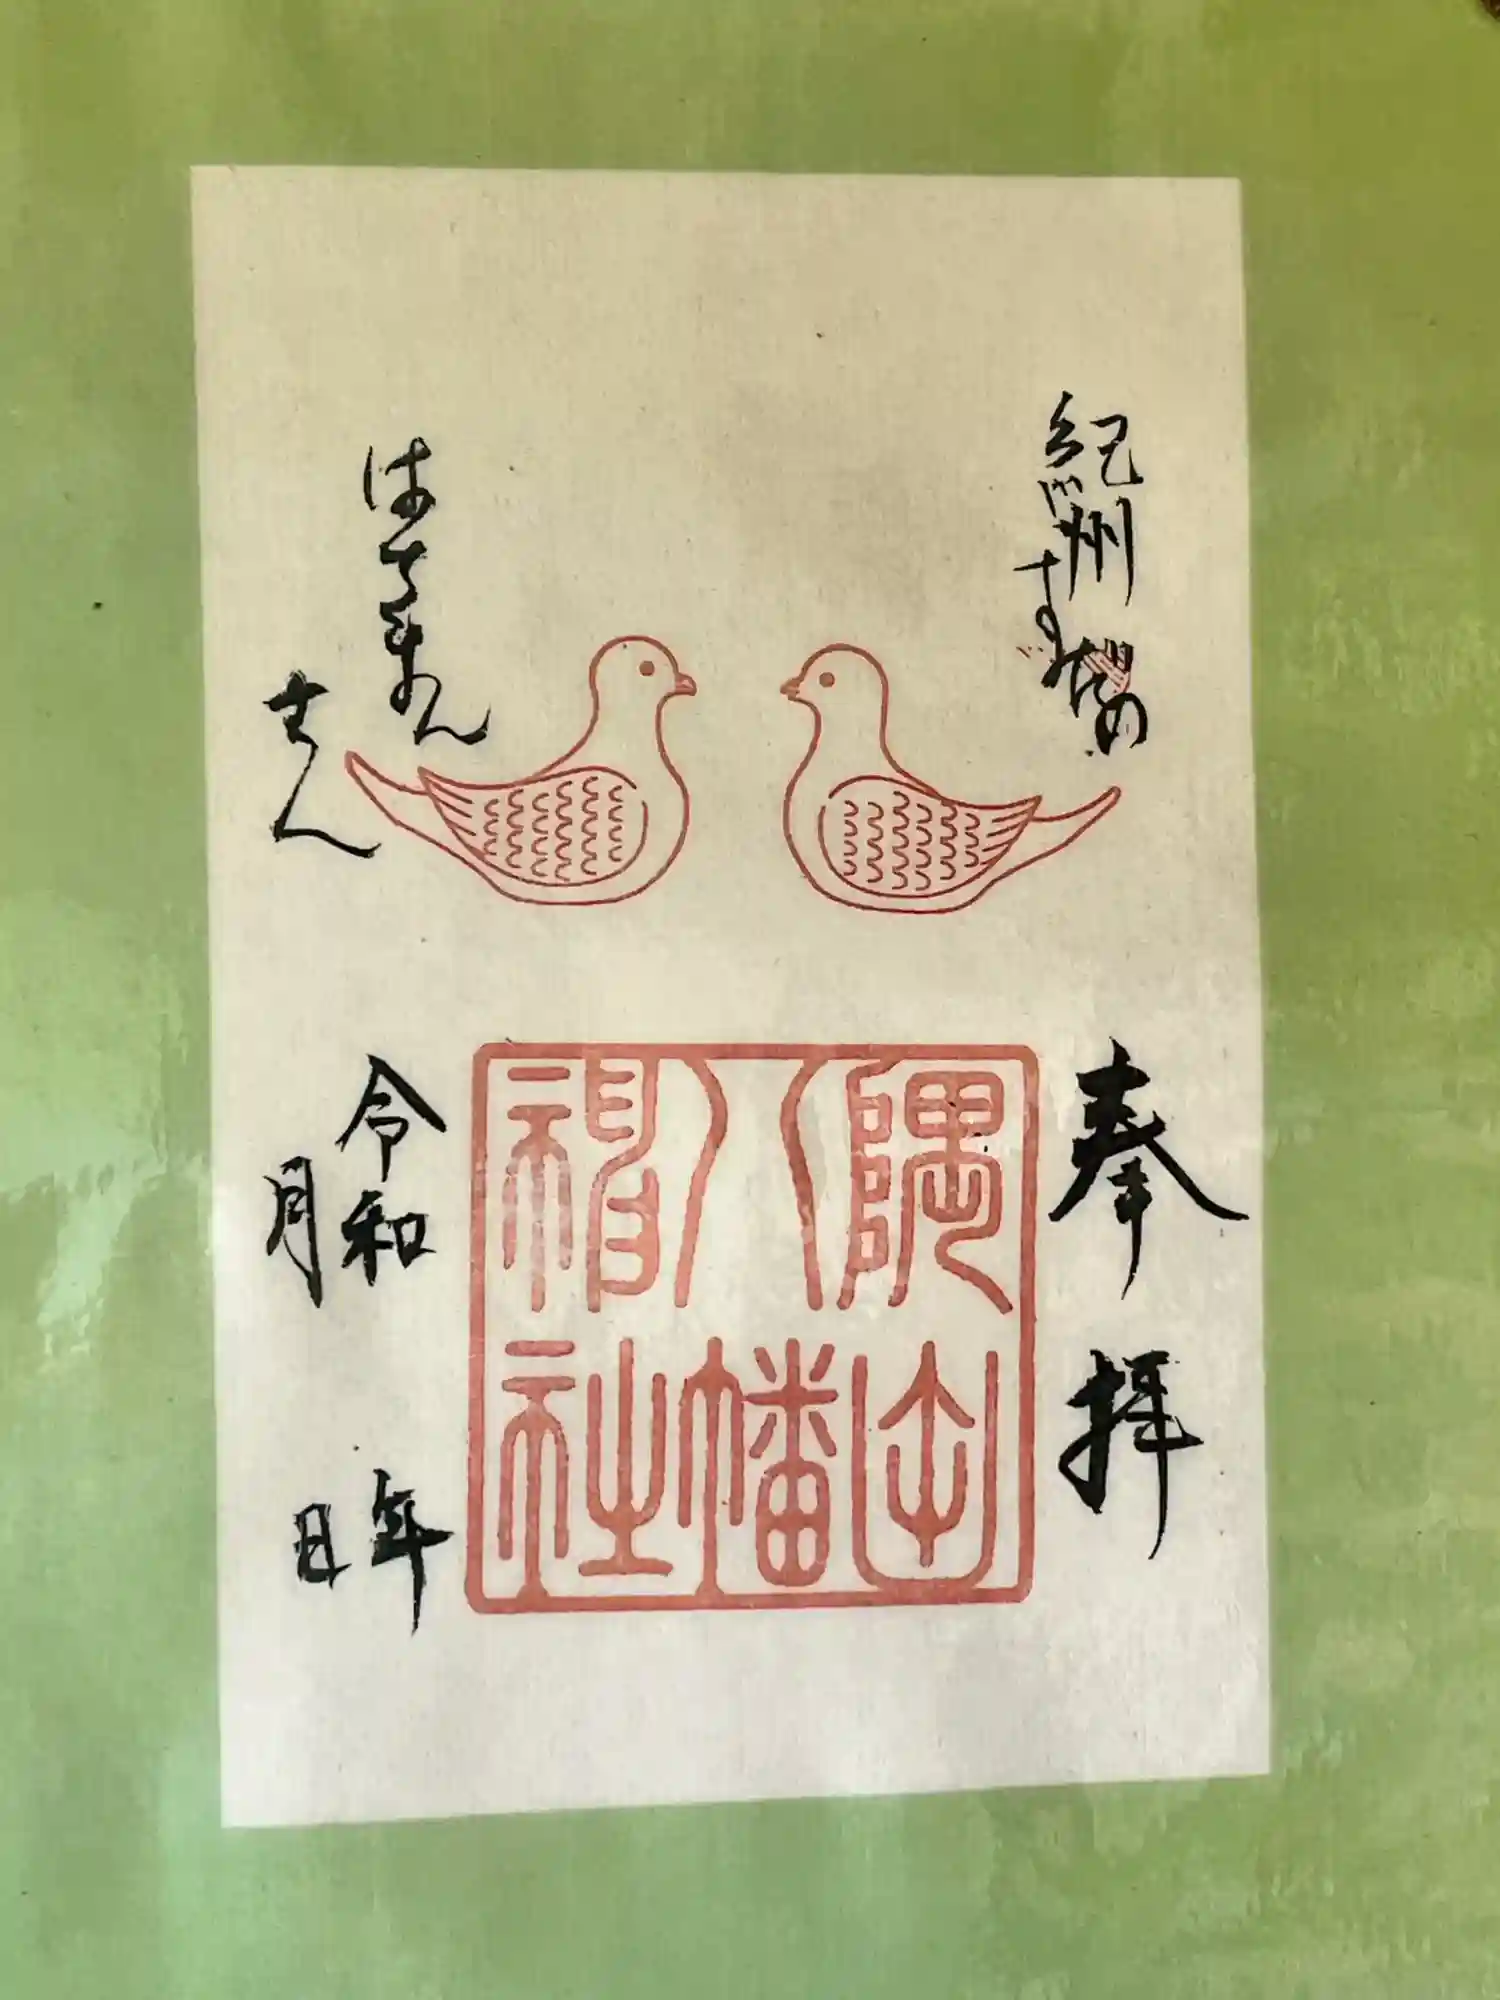 紀州
奉拝
隅
八幡
神社
はちまん
さん
令和 年
月 日